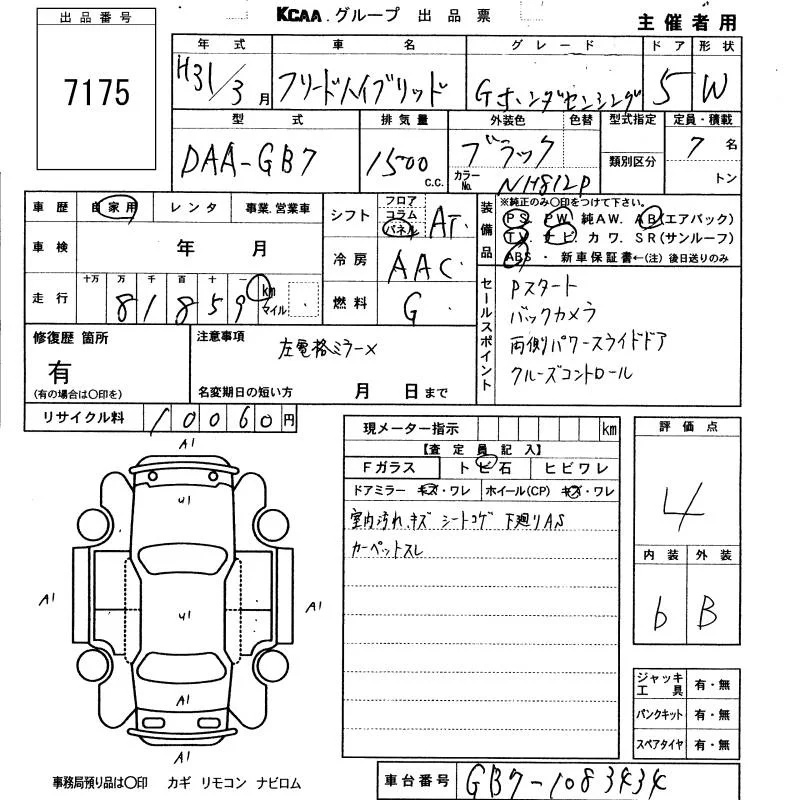 KCAA.グループ 出品票
主催者用
出品番号
7175
年式 車名 グレード ドア 形状
H31/3月 フリードハイブリッド Gホンダセンシング 5 W
型式 排気量 外装色 色替 型式指定 定員・積載
DAA-GB7 1500 c.c. ブラック 7名
カラーNo. NH812P 類別区分 トン
車歴 自家用 レンタ 事業.営業車
シフト フロア コラム パネル AT.
装備品 ※純正のみ○印をつけて下さい。
PS. PW. 純AW. AB(エアバック)
TV. ナビ. カワ. SR(サンルーフ)
ABS ・ 新車保証書←(注) 後日送りのみ
車検 年 月
冷房 AAC
走行 十万 万 千 百 十 一 km マイル
81859
燃料 G
セールスポイント
Pスタート
バックカメラ
両側パワースライドドア
クルーズコントロール
修復歴 箇所
有
(有の場合は○印を)
注意事項
左電格ミラー×
名変期日の短い方 月 日まで
リサイクル料 10060円
現メーター指示 km
【査定員記入】
Fガラス トビ石 ヒビワレ
ドアミラー キズ・ワレ ホイール(CP) キズ・ワレ
室内汚れ、キズ シートコゲ 下廻りAS
カーペットスレ
評価点
4
内装 外装
6 B
ジャッキ工具 有・無
パンクキット 有・無
スペアタイヤ 有・無
A1
U1
A1
U1
A1
A1
A1
事務局預り品は○印 カギ リモコン ナビロム
車台番号 GB7-1083434